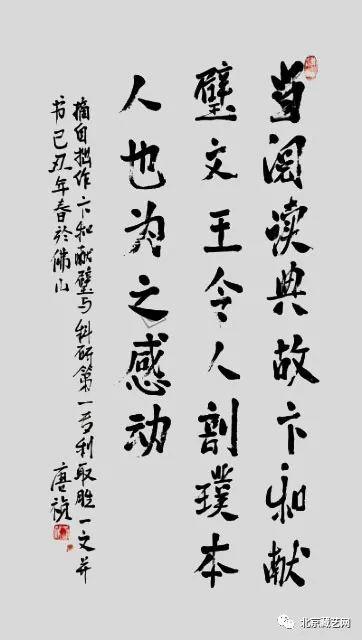 当阅读典故卞和献
璧文王令人剖璞本
人也为之感动
摘自拙作卞和献璧与科研第一专利取胜一文并
书己丑年春於佛山
唐
北京藏艺网